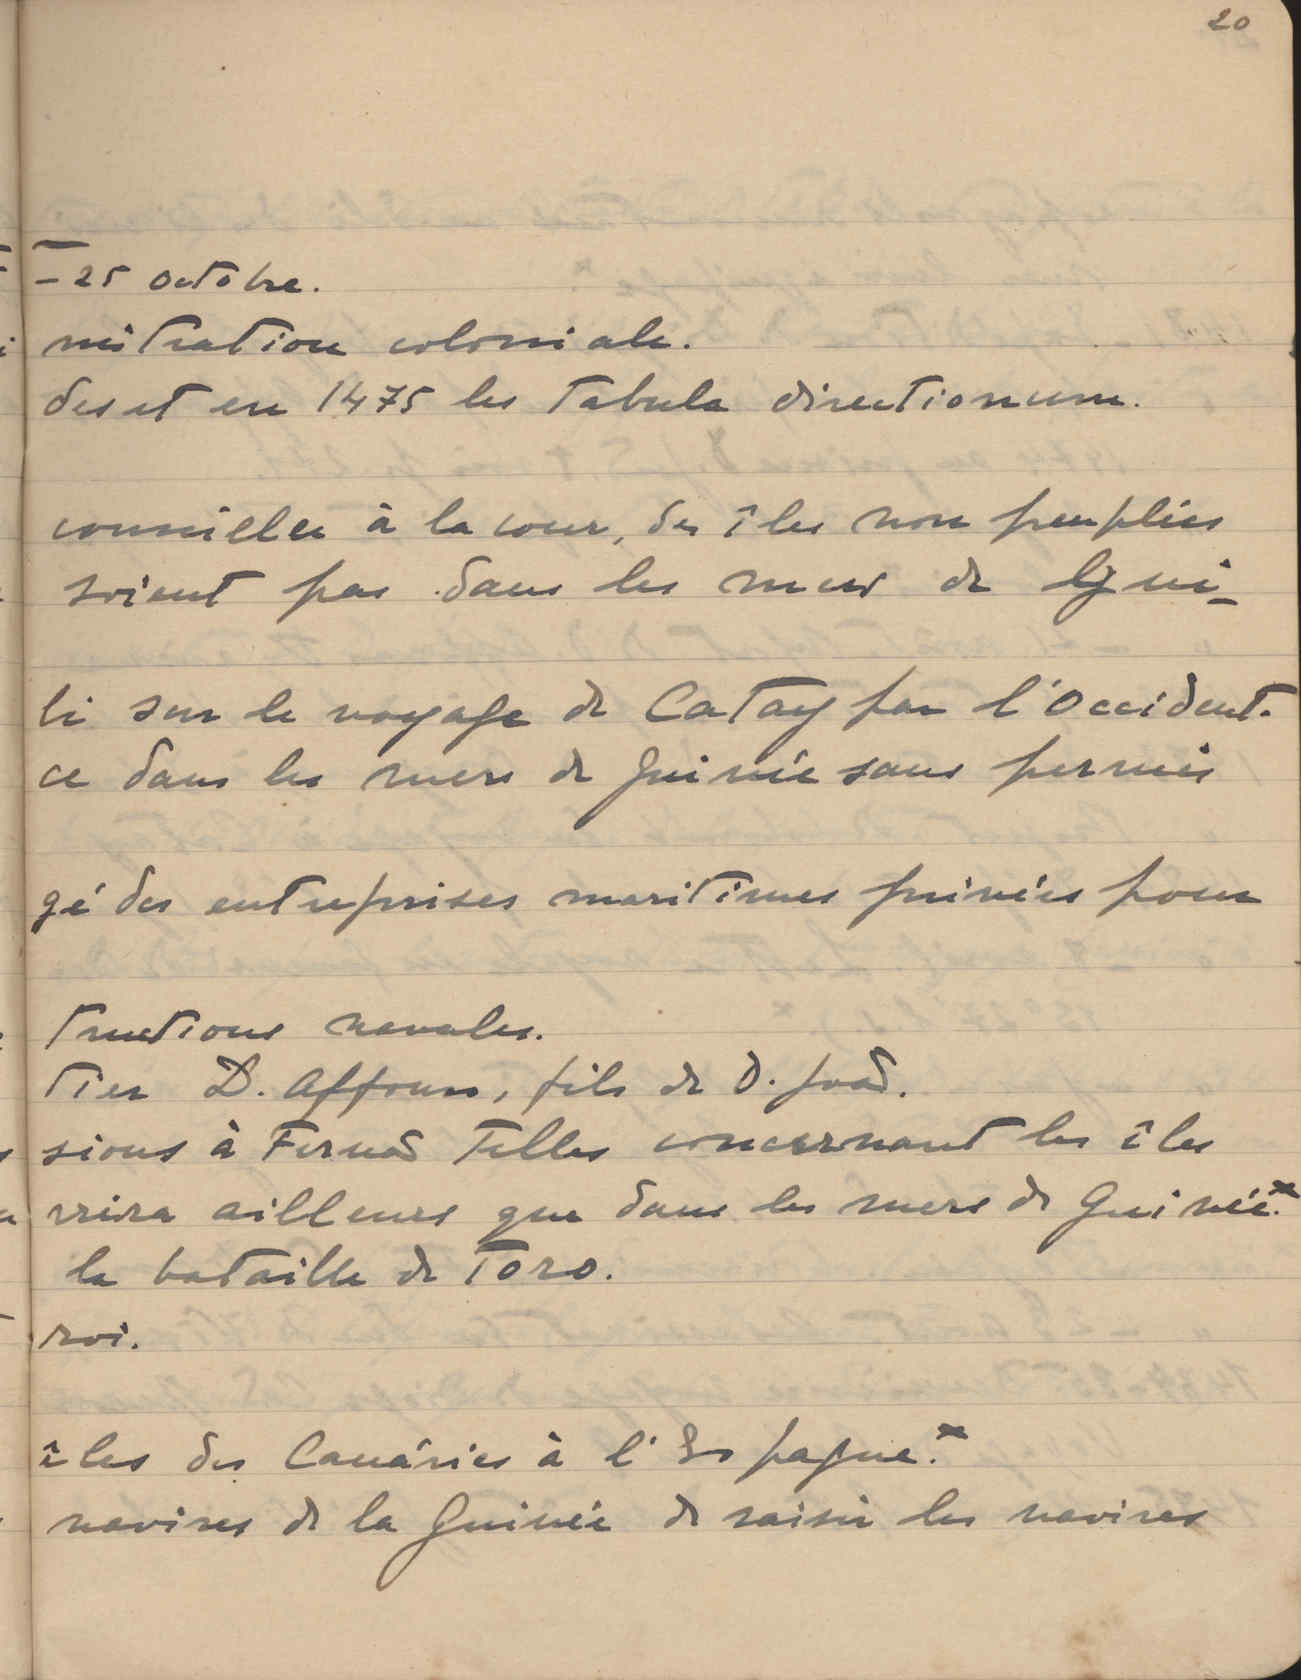 20
– 25 octobre.
nistration coloniale.
des et en 1475 les Tabula directionum.
conseiller à la cour, des îles non peuplées
soient pas dans les mers de Gui-
li sur le voyage de Catay par l'Occident.
ce dans les mers de Guinée sans permis
gé des entreprises maritimes privées pour
tructions navales.
tier D. Affonso, fils de D. João.
sions à Fernão Telles concernant les îles
vrira ailleurs que dans les mers de Guinée.*
la bataille de Toro.
roi.
îles des Canáries à l'Espagne.*
navires de la Guinée de saisir les navires